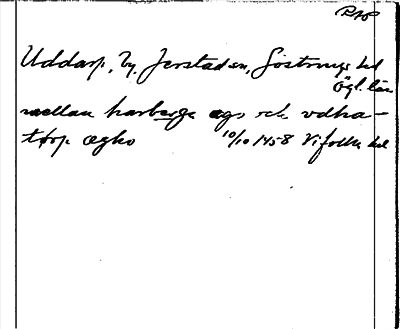 RAP
Uddarp, by, Jerstaden, Göstrings hd
Ögl. län
mellan harberga ego och vdha-
torp egho 10/10 1458 Vifolka hd